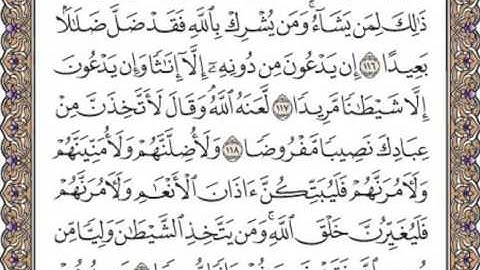 ذَٰلِكَ لِمَن يَشَآءُۚ وَمَن يُشْرِكْ بِٱللَّهِ فَقَدْ ضَلَّ ضَلَٰلَۢا
بَعِيدًا ۝١١٦ إِن يَدْعُونَ مِن دُونِهِۦٓ إِلَّآ إِنَٰثًا وَإِن يَدْعُونَ
إِلَّا شَيْطَٰنًا مَّرِيدًا ۝١١٧ لَّعَنَهُ ٱللَّهُۘ وَقَالَ لَأَتَّخِذَنَّ مِنْ
عِبَادِكَ نَصِيبًا مَّفْرُوضًا ۝١١٨ وَلَأُضِلَّنَّهُمْ وَلَأُمَنِّيَنَّهُمْ
وَلَءَامُرَنَّهُمْ فَلَيُبَتِّكُنَّ ءَاذَانَ ٱلْأَنْعَٰمِ وَلَءَامُرَنَّهُمْ
فَلَيُغَيِّرُنَّ خَلْقَ ٱللَّهِۚ وَمَن يَتَّخِذِ ٱلشَّيْطَٰنَ وَلِيًّا مِّن